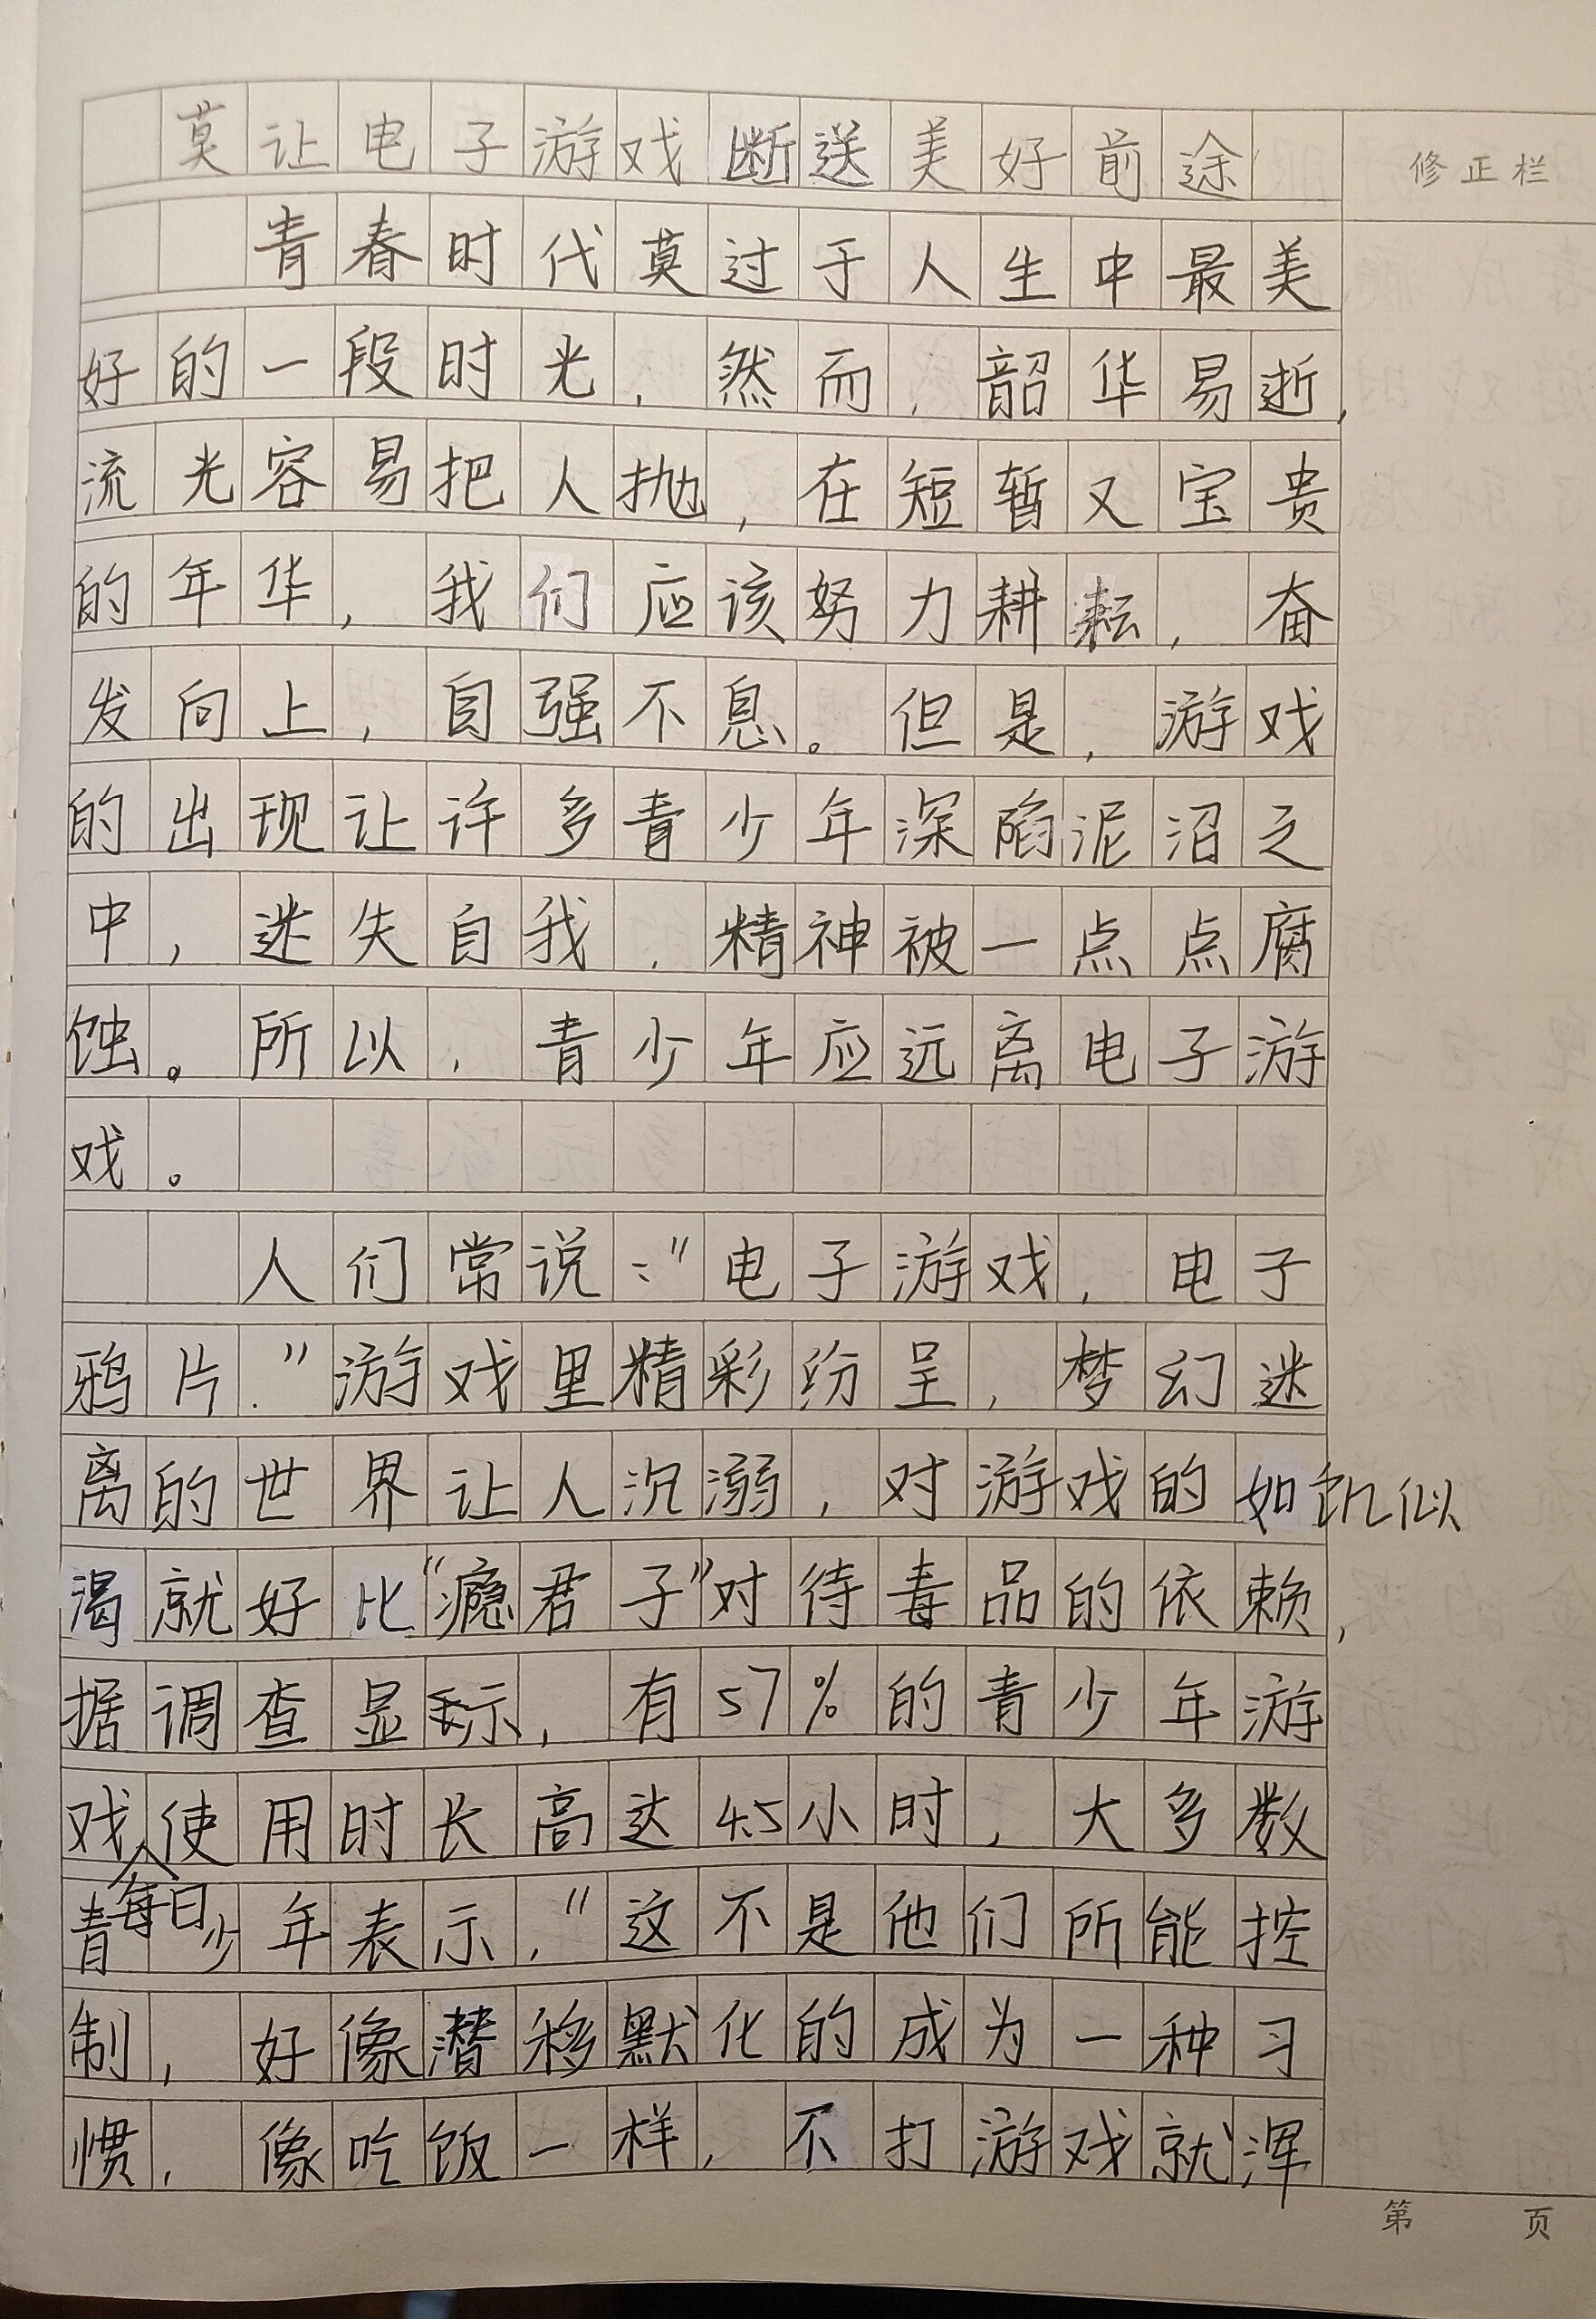 莫让电子游戏断送美好前途
修正栏
青春时代莫过于人生中最美
好的一段时光，然而，韶华易逝，
流光容易把人抛，在短暂又宝贵
的年华，我们应该努力耕耘，奋
发向上，自强不息。但是，游戏
的出现让许多青少年深陷泥沼之
中，迷失自我，精神被一点点腐
蚀。所以，青少年应远离电子游
戏。
人们常说："电子游戏，电子
鸦片."游戏里精彩纷呈，梦幻迷
离的世界让人沉溺，对游戏的如饥似
渴就好比"瘾君子"对待毒品的依赖，
据调查显示，有57%的青少年游
戏使用时长高达4.5小时，大多数
每日
青少年表示，"这不是他们所能控
制，好像潜移默化的成为一种习
惯，像吃饭一样，不打游戏就浑
第 页